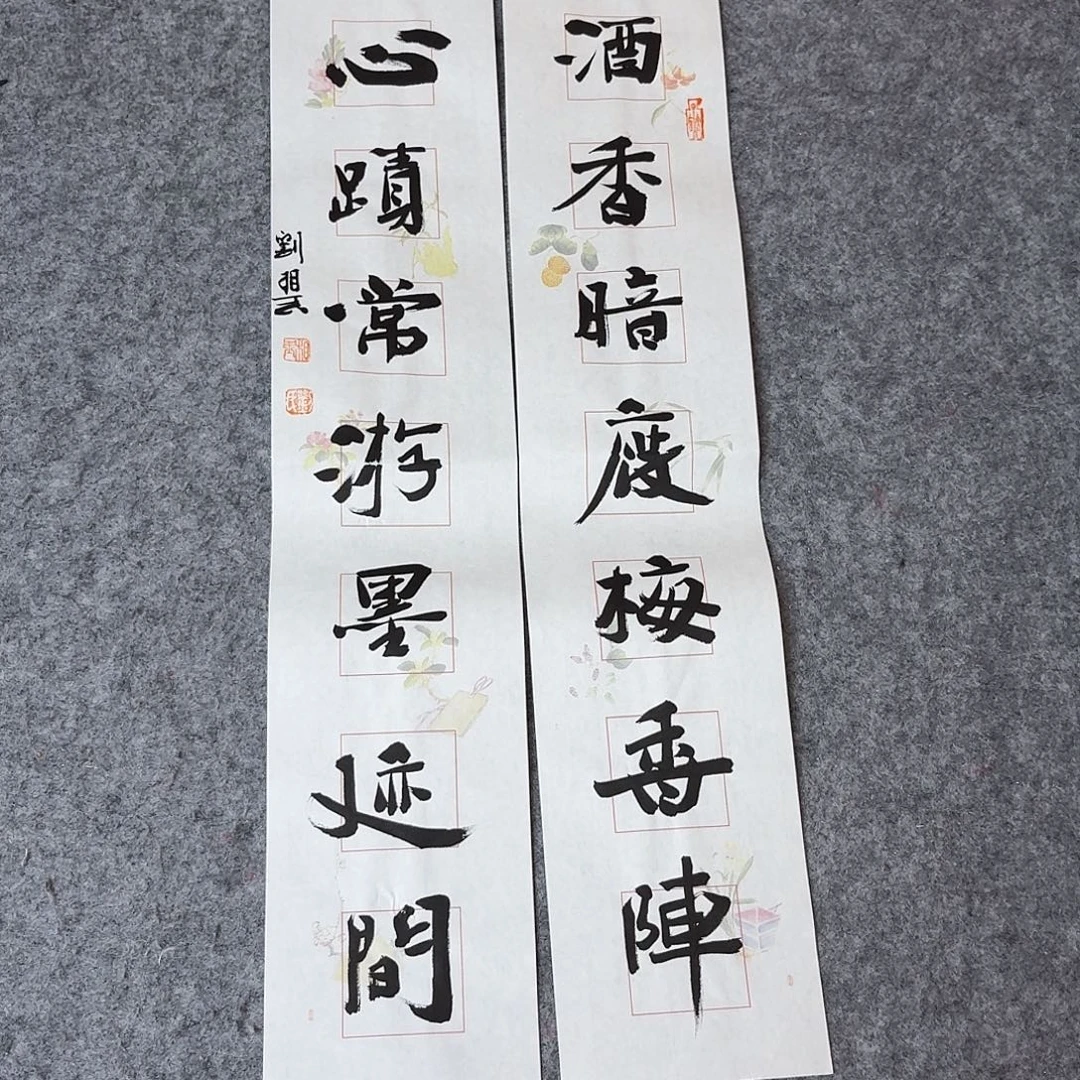 酒香暗度梅香陣
心蹟常游墨迹間
劉